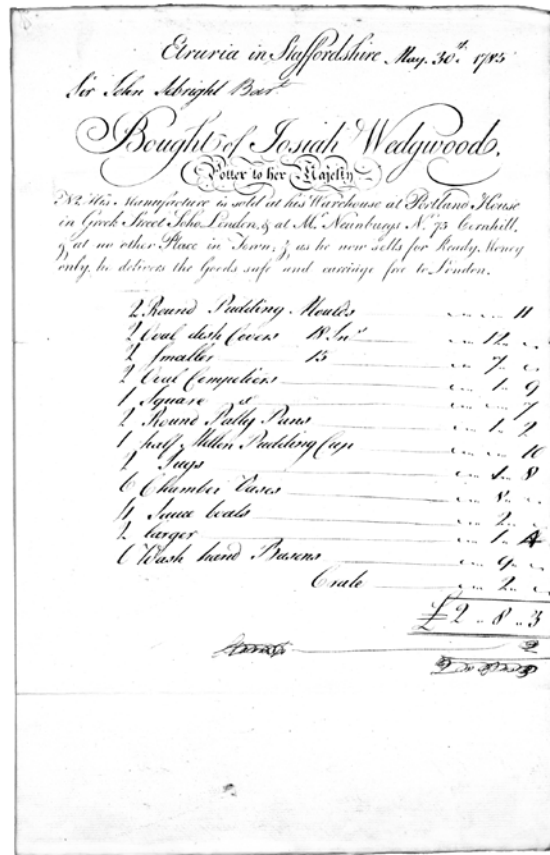 Etruria in Staffordshire May. 30th. 1785
Sir John Sebright Bart
Bought of Josiah Wedgwood,
Potter to her Majesty
NB. His Manufacture is sold at his Warehouse at Portland House
in Greek Street Soho London, & at Mr. Neunburgs No. 75 Cornhill,
& at no other Place in Town; & as he now sells for Ready Money
only, he delivers the Goods safe and carriage free to London.
2 Round Pudding Moulds 11
2 Oval dish Covers 18 Ins 12
2 Smaller 15 7
2 Oval Compotiers 1 9
1 Square do 7
2 Round Patty Pans 1 2
1 half Mellon Pudding Cup 10
2 Jugs 1 8
6 Chamber Vases 8
4 Sauce boats 2
2 larger 1 4
6 Wash hand Basens 9
Crate 2
£2 .. 8 .. 3
2